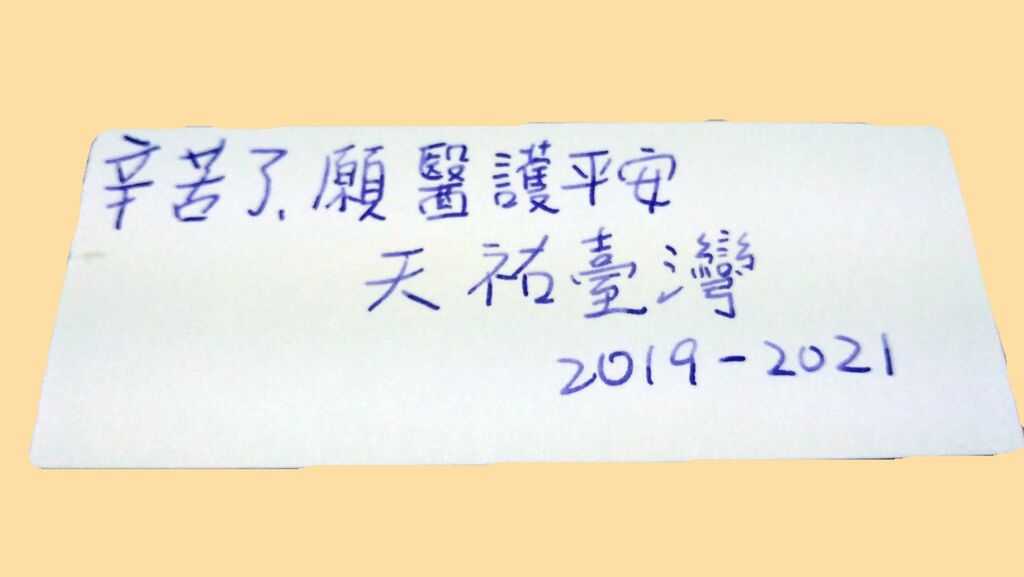 辛苦了、願醫護平安
天祐臺灣
2019-2021